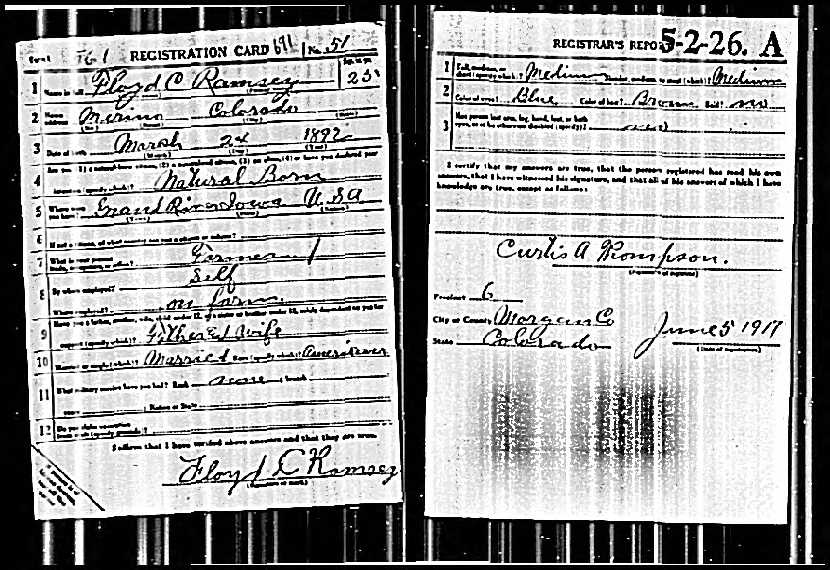 Form 1 REGISTRATION CARD No. 51
1 Name in full Floyd C Ramsey Age, in yrs. 25
2 Home address Merino Colorado
(No.) (Street) (City) (State)
3 Date of birth March 24 1892
(Month) (Day) (Year)
4 Are you (1) a natural-born citizen, (2) a naturalized citizen, (3) an alien, (4) or have you declared your
intention (specify which)? Natural Born
5 Where were you born? Grand River Iowa USA
(Town) (State) (Nation)
6 If not a citizen, of what country are you a citizen or subject?
7 What is your present trade, occupation, or office? Farmer
8 By whom employed? Self
Where employed? on farm
9 Have you a father, mother, wife, child under 12, or a sister or brother under 12, solely dependent on you for
support (specify which)? Father & Wife
10 Married or single (which)? Married Race (specify which)? American
11 What military service have you had? Rank none branch
years Nation or State
12 Do you claim exemption from draft (specify grounds)?
I affirm that I have verified above answers and that they are true.
Floyd C Ramsey
(Signature or mark)
REGISTRAR'S REPORT 5-2-26. A
1 Tall, medium, or short (specify which)? Medium Slender, medium, or stout (which)? Medium
2 Color of eyes? Blue Color of hair? Brown Bald? no
3 Has person lost arm, leg, hand, foot, or both
eyes, or is he otherwise disabled (specify)?
I certify that my answers are true, that the person registered has read his own
answers, that I have witnessed his signature, and that all of his answers of which I have
knowledge are true, except as follows:
Curtis A Thompson.
(Signature of registrar)
Precinct 6
City or County Morgan Co
State Colorado
June 5 1917
(Date of registration)